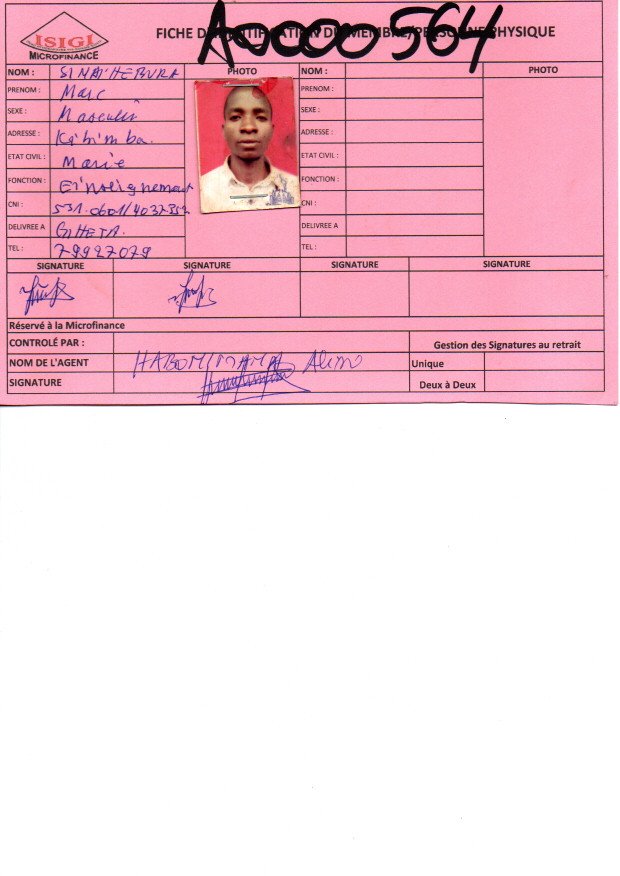 ISIGI
MICROFINANCE
FICHE D'IDENTIFICATION DU MEMBRE/PERSONNE PHYSIQUE
A00000564
NOM :
PHOTO
NOM :
PHOTO
PRENOM : Marc
PRENOM :
SEXE : Masculin
SEXE :
ADRESSE :
ADRESSE :
ETAT CIVIL : Marié
ETAT CIVIL :
FONCTION : Enseignement
FONCTION :
CNI : 531.0601/4037352
CNI :
DELIVREE A GIHETA.
DELIVREE A
TEL : 79927079
TEL :
SIGNATURE SIGNATURE SIGNATURE SIGNATURE
Réservé à la Microfinance
CONTROLÉ PAR :
Gestion des Signatures au retrait
NOM DE L'AGENT
Unique
SIGNATURE
Deux à Deux